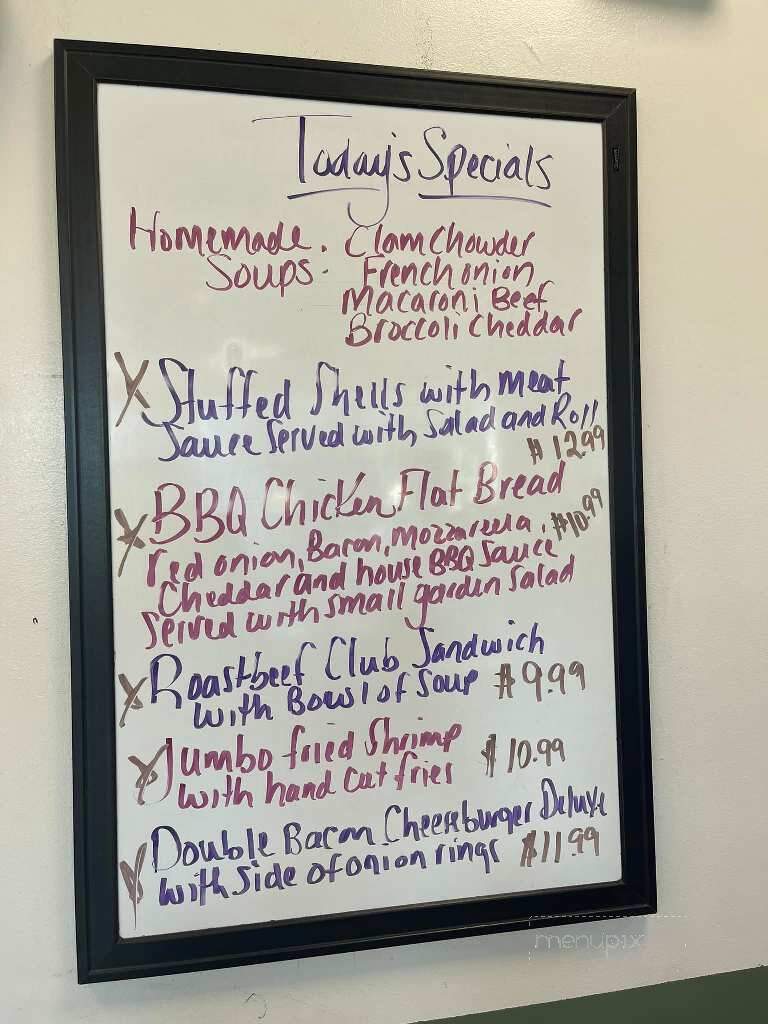 Today's Specials
Homemade. Clam Chowder
Soups. French onion
Macaroni Beef
Broccoli Cheddar
X Stuffed Shells with meat
Sauce Served with Salad and Roll
$12.99
X BBQ Chicken Flat Bread
red onion, Bacon, Mozzarella, $10.99
Cheddar and house BBQ Sauce
Served with small garden Salad
X Roastbeef Club Sandwich
with Bowl of Soup $9.99
X Jumbo fried Shrimp
with hand cut fries $10.99
X Double Bacon Cheeseburger Deluxe
with side of onion rings $11.99
menupix